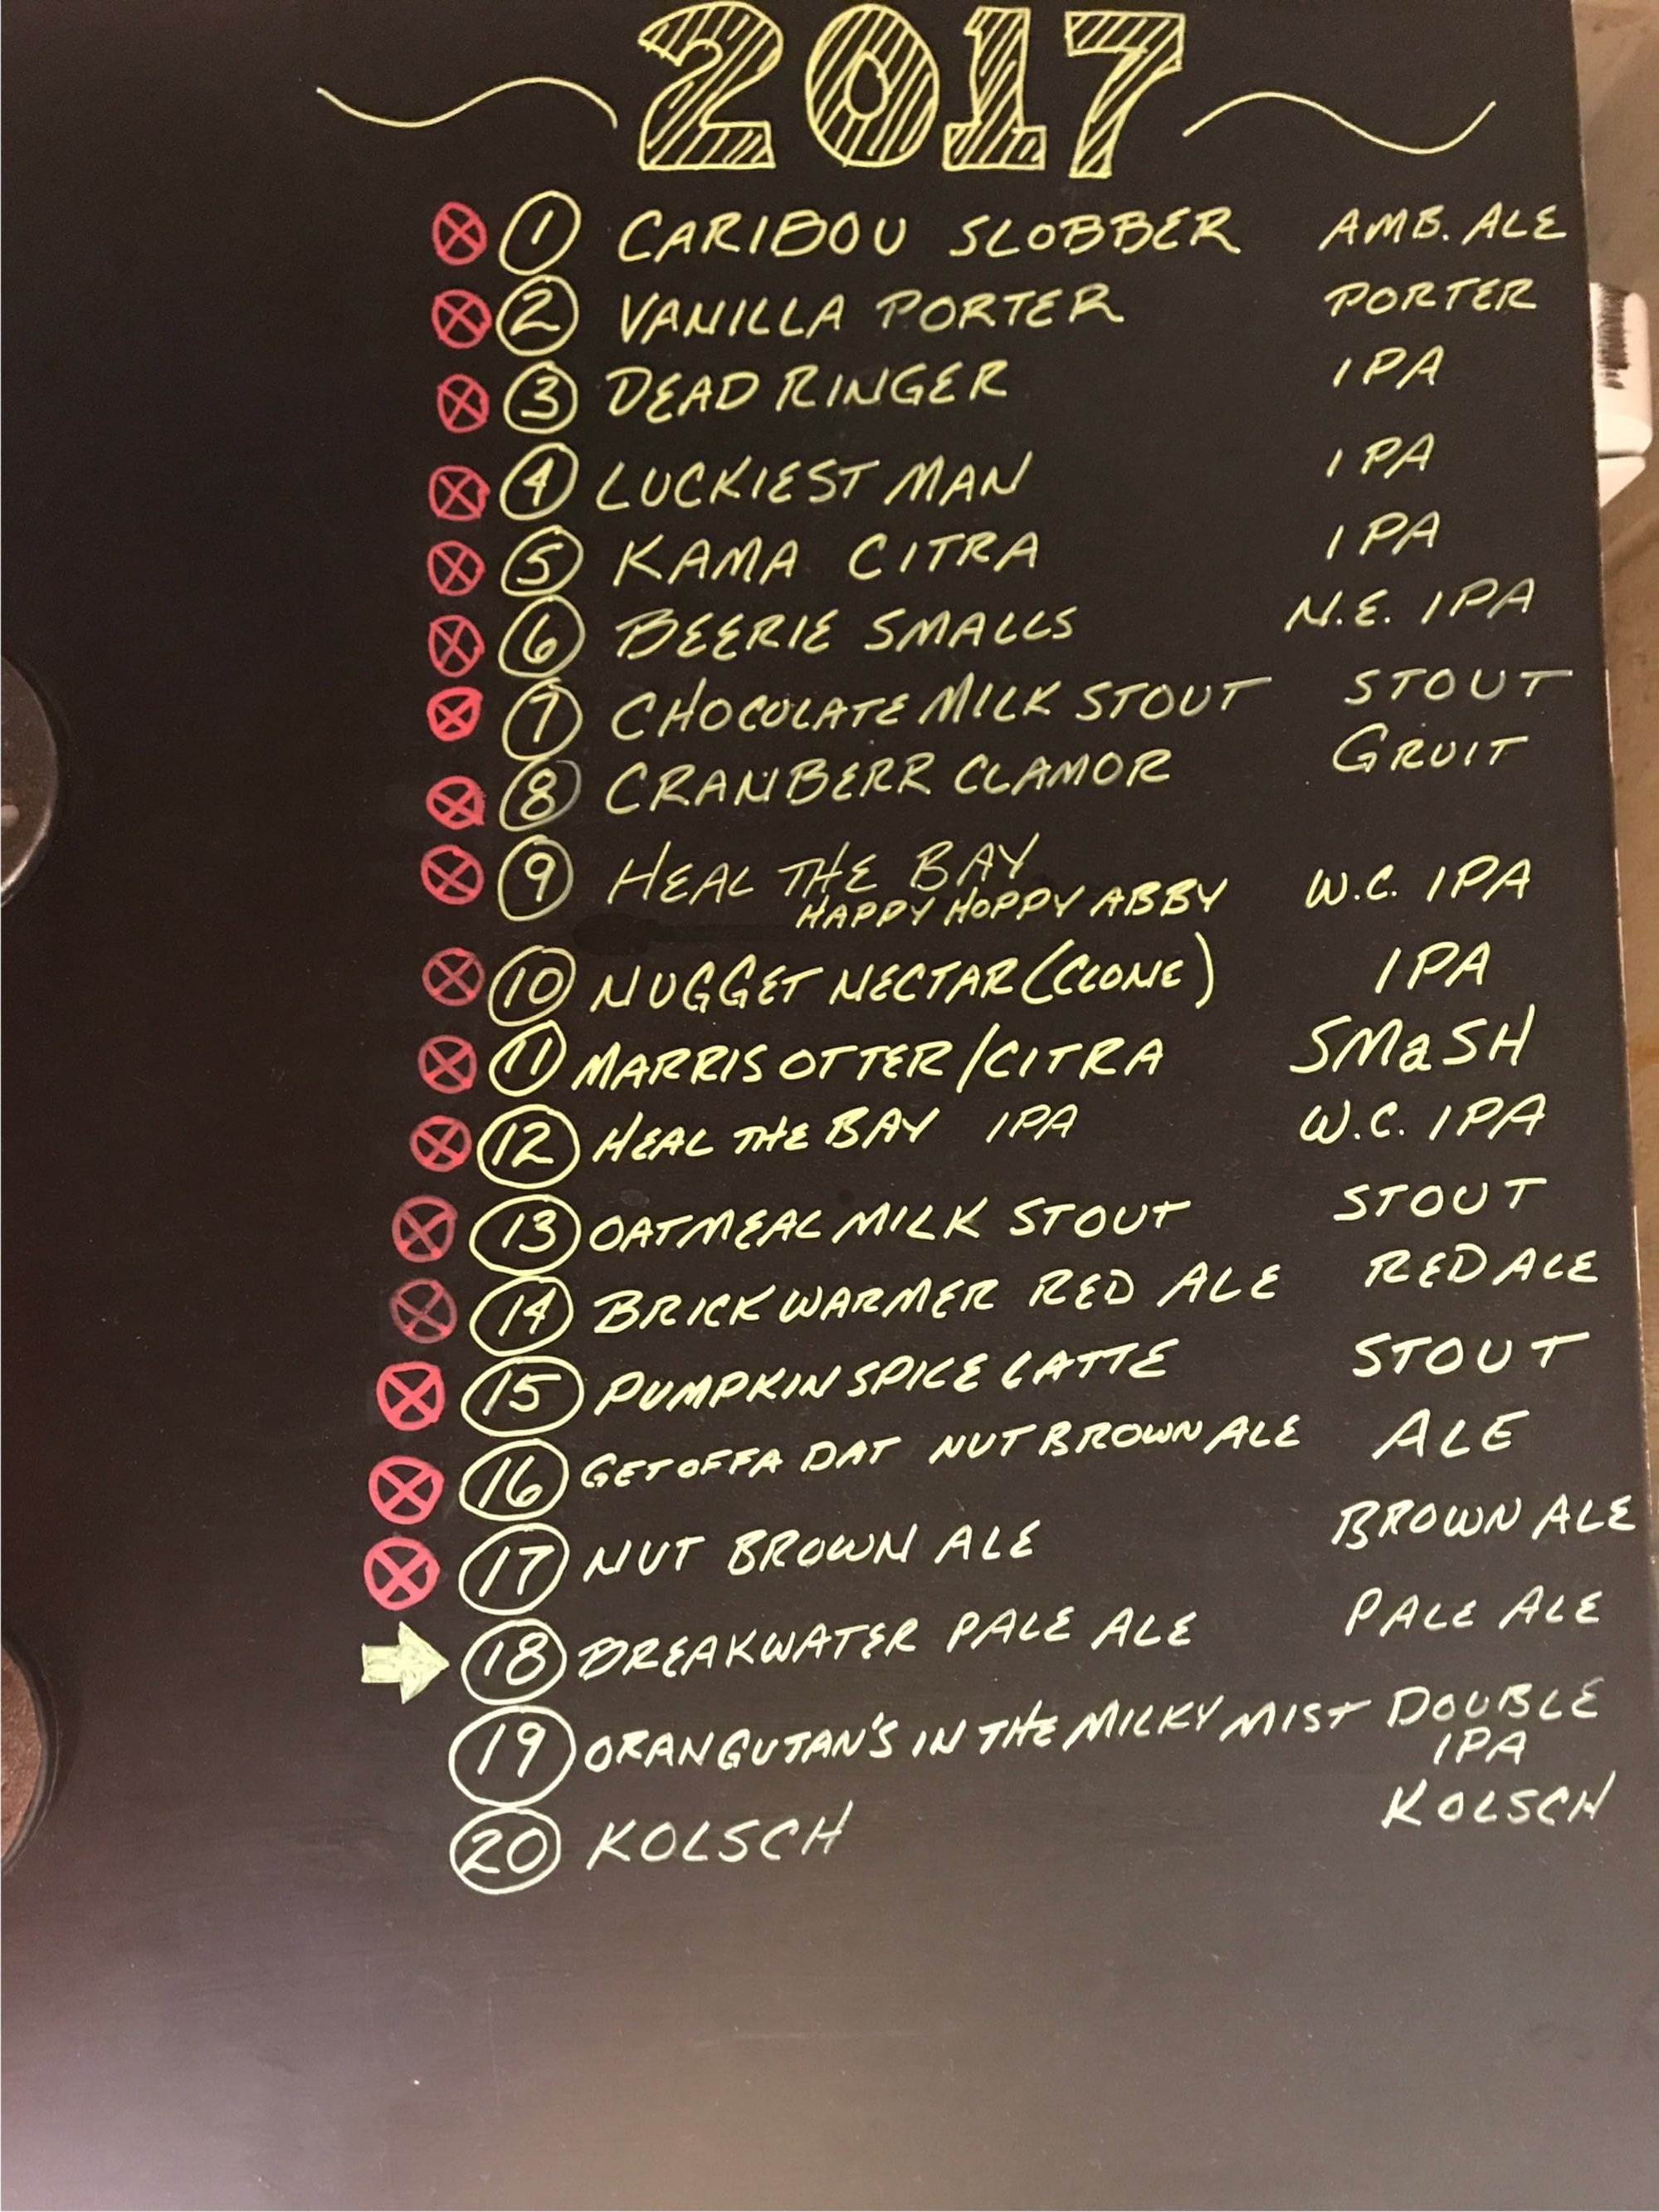 2017
1 CARIBOU SLOBBER AMB. ALE
2 VANILLA PORTER PORTER
3 DEAD RINGER IPA
4 LUCKIEST MAN IPA
5 KAMA CITRA IPA
6 BEERIE SMALLS N.E. IPA
7 CHOCOLATE MILK STOUT STOUT
8 CRANBERR CLAMOR GRUIT
9 HEAL THE BAY W.C. IPA
HAPPY HOPPY ABBY
10 NUGGET NECTAR (CLONE) IPA
11 MARRIS OTTER/CITRA SMaSH
12 HEAL THE BAY IPA W.C. IPA
13 OATMEAL MILK STOUT STOUT
14 BRICK WARMER RED ALE RED ALE
15 PUMPKIN SPICE LATTE STOUT
16 GET OFFA DAT NUT BROWN ALE ALE
17 NUT BROWN ALE BROWN ALE
18 BREAKWATER PALE ALE PALE ALE
19 ORANGUTAN'S IN THE MILKY MIST DOUBLE
IPA
20 KOLSCH KOLSCH